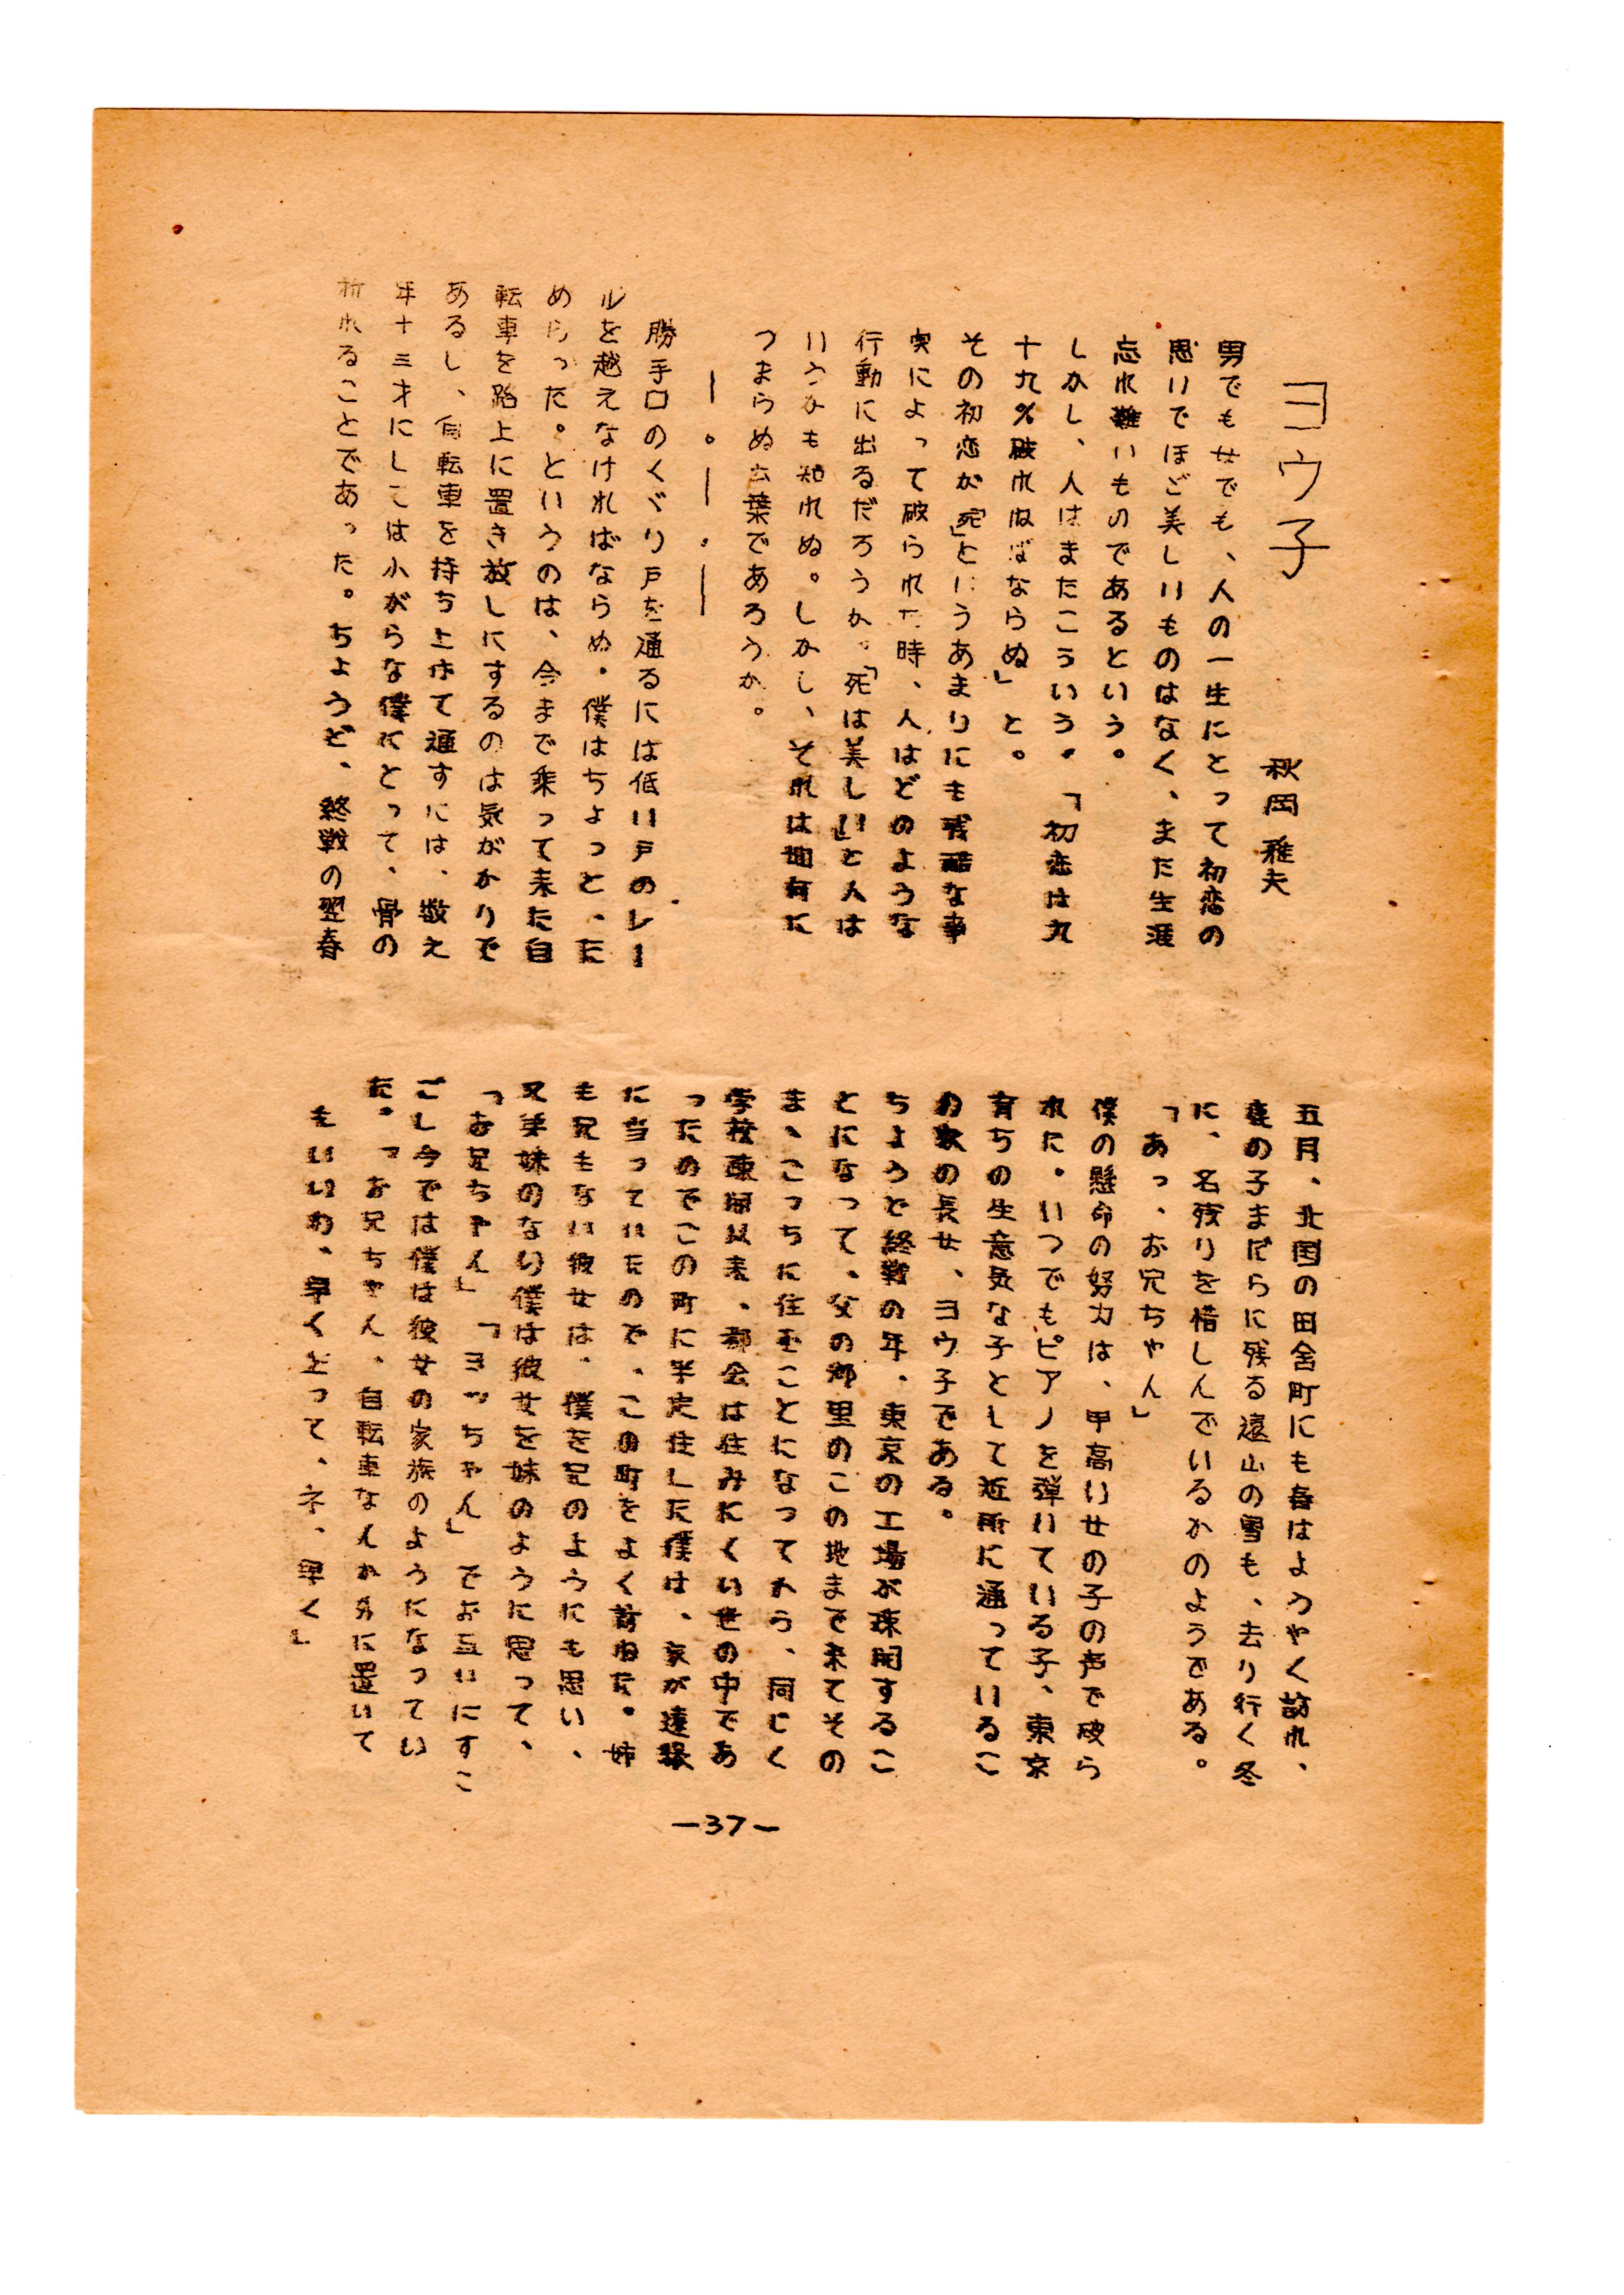 ヨウ子
秋岡 雅夫
男でも女でも、人の一生にとって初恋の
思いでほど美しいものはなく、また生涯
忘れ難いものであるという。
しかし、人はまたこういう。「初恋は九
十九%破れねばならぬ」と。
その初恋が「死」というあまりにも残酷な事
実によって破られた時、人はどのような
行動に出るだろうか。「死は美しい」と人は
いうかも知れぬ。しかし、それは
つまらぬ言葉であろうか。
―。―.―
勝手口のくぐり戸を通るには低い戸のレー
ルを越えなければならぬ。僕はちょっと、た
めらった。というのは、今まで乗って来た自
転車を路上に置き放しにするのは気がかりで
あるし、自転車を持ち上げて通すには、数え
年十三才にしては小がらな僕にとって、骨の
折れることであった。ちょうど、終戦の翌春
五月、北国の田舎町にも春はようやく訪れ、
鹿の子まだらに残る遠山の雪も、去り行く冬
に、名残りを惜しんでいるかのようである。
「あっ、お兄ちゃん」
僕の懸命の努力は、甲高い女の子の声で破ら
れた。いつでもピアノを弾いている子、東京
育ちの生意気な子として近所に通っているこ
の家の長女、ヨウ子である。
ちょうど終戦の年、東京の工場が疎開するこ
とになって、父の郷里のこの地まで来てその
まゝこっちに住むことになってから、同じく
学校疎開以来、都会は住みにくい世の中であ
ったのでこの町に半定住した僕は、家が遠縁
に当っていたので、この町をよく訪ねた。姉
も兄もない彼女は、僕を兄のようにも思い、
又弟妹のない僕は彼女を妹のように思って、
「お兄ちゃん」「ヨッちゃん」でお互いにすご
ごし今では僕は彼女の家族のようになってい
た。「お兄ちゃん、自転車なんか外に置いて
もいいわ、早く上って、ネ、早く」
―37―